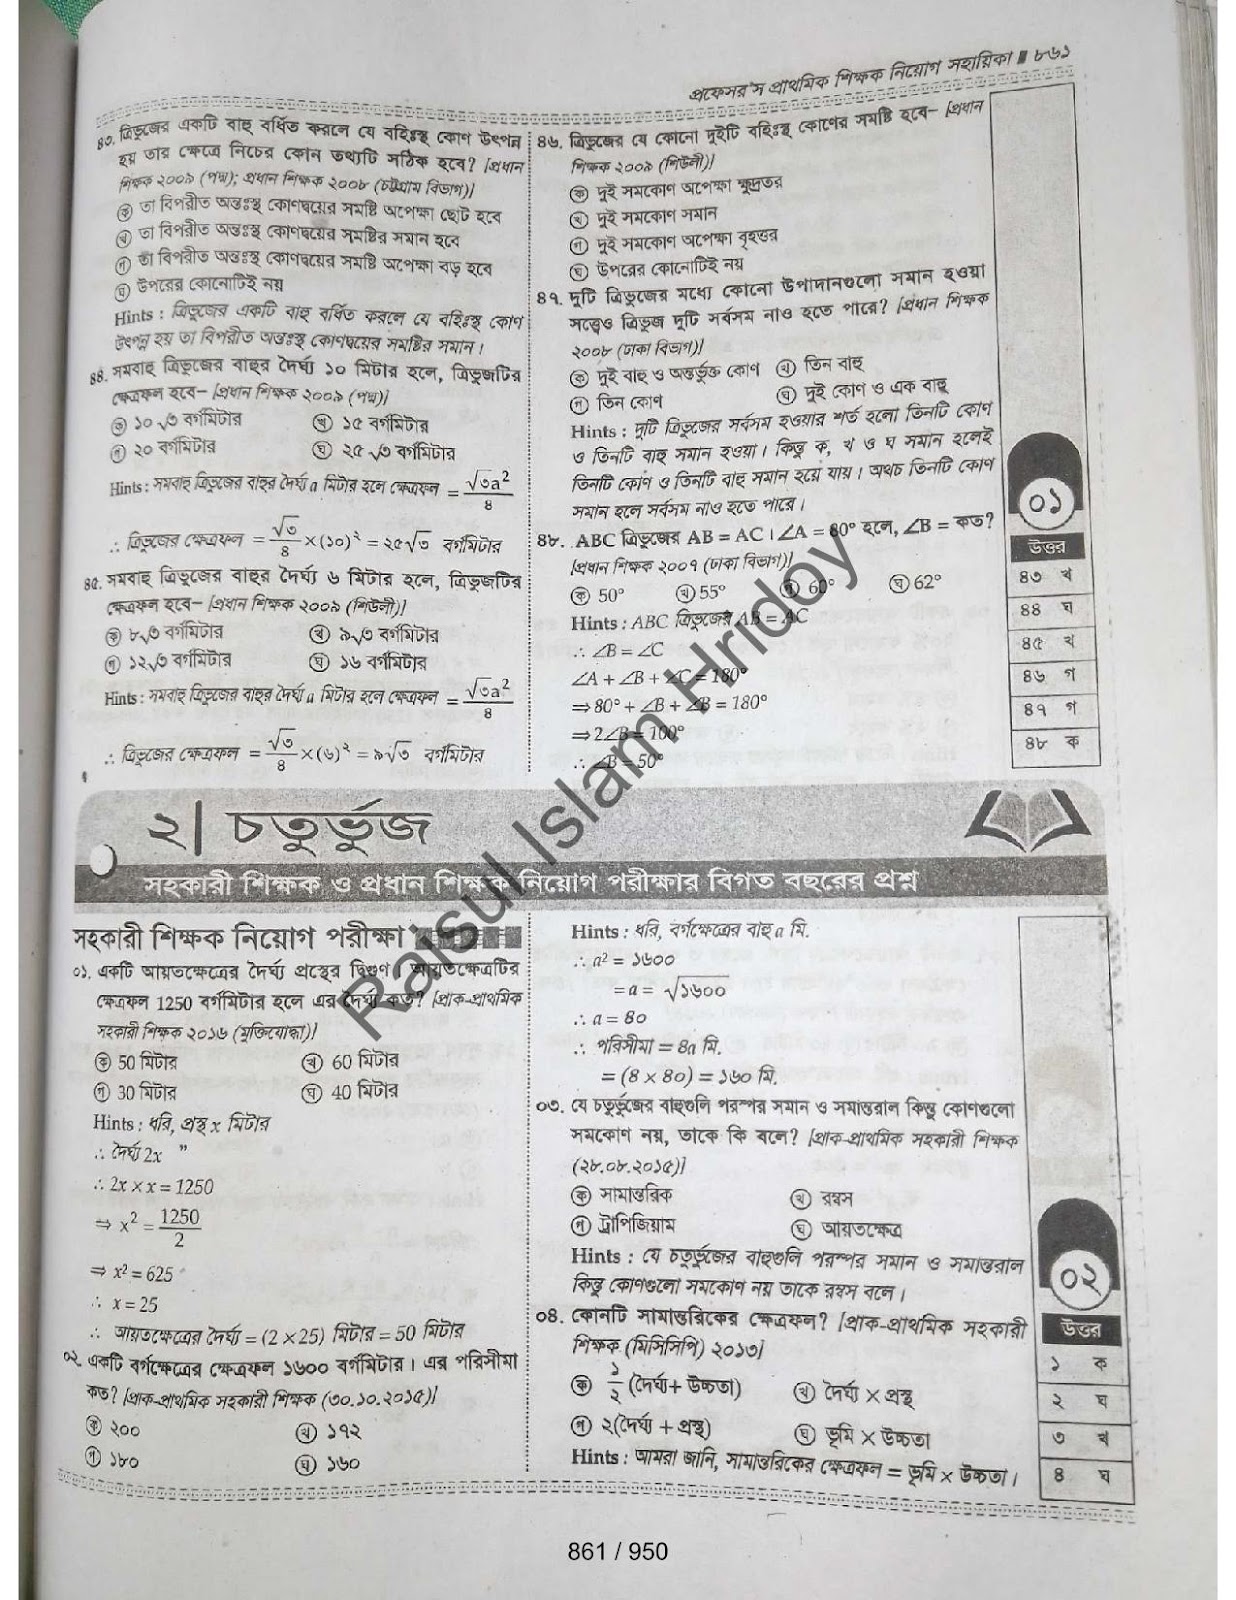 প্রফেসর'স প্রাথমিক শিক্ষক নিয়োগ সহায়িকা ■ ৮৬১
৪৩. ত্রিভুজের একটি বাহু বর্ধিত করলে যে বহিঃস্থ কোণ উৎপন্ন
হয় তার ক্ষেত্রে নিচের কোন তথ্যটি সঠিক হবে? [প্রধান
শিক্ষক ২০০৯ (পদ্ম); প্রধান শিক্ষক ২০০৮ (চট্টগ্রাম বিভাগ)]
ক তা বিপরীত অন্তঃস্থ কোণদ্বয়ের সমষ্টি অপেক্ষা ছোট হবে
খ তা বিপরীত অন্তঃস্থ কোণদ্বয়ের সমষ্টির সমান হবে
গ তা বিপরীত অন্তঃস্থ কোণদ্বয়ের সমষ্টি অপেক্ষা বড় হবে
ঘ উপরের কোনোটিই নয়
Hints : ত্রিভুজের একটি বাহু বর্ধিত করলে যে বহিঃস্থ কোণ
উৎপন্ন হয় তা বিপরীত অন্তঃস্থ কোণদ্বয়ের সমষ্টির সমান।
৪৪. সমবাহু ত্রিভুজের বাহুর দৈর্ঘ্য ১০ মিটার হলে, ত্রিভুজটির
ক্ষেত্রফল হবে– [প্রধান শিক্ষক ২০০৯ (পদ্ম)]
ক ১০√৩ বর্গমিটার খ ১৫ বর্গমিটার
গ ২০ বর্গমিটার ঘ ২৫√৩ বর্গমিটার
Hints : সমবাহু ত্রিভুজের বাহুর দৈর্ঘ্য a মিটার হলে ক্ষেত্রফল = √৩a²/৪
∴ ত্রিভুজের ক্ষেত্রফল = √৩/৪ × (১০)² = ২৫√৩ বর্গমিটার
৪৫. সমবাহু ত্রিভুজের বাহুর দৈর্ঘ্য ৬ মিটার হলে, ত্রিভুজটির
ক্ষেত্রফল হবে– [প্রধান শিক্ষক ২০০৯ (শিউলী)]
ক ৮√৩ বর্গমিটার খ ৯√৩ বর্গমিটার
গ ১২√৩ বর্গমিটার ঘ ১৬ বর্গমিটার
Hints : সমবাহু ত্রিভুজের বাহুর দৈর্ঘ্য a মিটার হলে ক্ষেত্রফল = √৩a²/৪
∴ ত্রিভুজের ক্ষেত্রফল = √৩/৪ × (৬)² = ৯√৩ বর্গমিটার
৪৬. ত্রিভুজের যে কোনো দুইটি বহিঃস্থ কোণের সমষ্টি হবে– [প্রধান
শিক্ষক ২০০৯ (শিউলী)]
ক দুই সমকোণ অপেক্ষা ক্ষুদ্রতর
খ দুই সমকোণ সমান
গ দুই সমকোণ অপেক্ষা বৃহত্তর
ঘ উপরের কোনোটিই নয়
৪৭. দুটি ত্রিভুজের মধ্যে কোনো উপাদানগুলো সমান হওয়া
সত্ত্বেও ত্রিভুজ দুটি সর্বসম নাও হতে পারে? [প্রধান শিক্ষক
২০০৮ (ঢাকা বিভাগ)]
ক দুই বাহু ও অন্তর্ভুক্ত কোণ খ তিন বাহু
গ তিন কোণ ঘ দুই কোণ ও এক বাহু
Hints : দুটি ত্রিভুজের সর্বসম হওয়ার শর্ত হলো তিনটি কোণ
ও তিনটি বাহু সমান হওয়া। কিন্তু ক, খ ও ঘ সমান হলেই
তিনটি কোণ ও তিনটি বাহু সমান হয়ে যায়। অথচ তিনটি কোণ
সমান হলে সর্বসম নাও হতে পারে।
৪৮. ABC ত্রিভুজের AB = AC। ∠A = 80° হলে, ∠B = কত?
[প্রধান শিক্ষক ২০০৭ (ঢাকা বিভাগ)]
ক 50° খ 55° গ 60° ঘ 62°
Hints : ABC ত্রিভুজের AB = AC
∴ ∠B = ∠C
∠A + ∠B + ∠C = 180°
⇒ 80° + ∠B + ∠B = 180°
⇒ 2∠B = 100°
∴ ∠B = 50°
০১
উত্তর
৪৩ খ
৪৪ ঘ
৪৫ খ
৪৬ গ
৪৭ গ
৪৮ ক
২| চতুর্ভুজ
সহকারী শিক্ষক ও প্রধান শিক্ষক নিয়োগ পরীক্ষার বিগত বছরের প্রশ্ন
সহকারী শিক্ষক নিয়োগ পরীক্ষা
০১. একটি আয়তক্ষেত্রের দৈর্ঘ্য প্রস্থের দ্বিগুণ। আয়তক্ষেত্রটির
ক্ষেত্রফল 1250 বর্গমিটার হলে এর দৈর্ঘ্য কত? [প্রাক-প্রাথমিক
সহকারী শিক্ষক ২০১৬ (মুক্তিযোদ্ধা)]
ক 50 মিটার খ 60 মিটার
গ 30 মিটার ঘ 40 মিটার
Hints : ধরি, প্রস্থ x মিটার
∴ দৈর্ঘ্য 2x ”
∴ 2x × x = 1250
⇒ x² = 1250/2
⇒ x² = 625
∴ x = 25
∴ আয়তক্ষেত্রের দৈর্ঘ্য = (2 × 25) মিটার = 50 মিটার
০২. একটি বর্গক্ষেত্রের ক্ষেত্রফল ১৬০০ বর্গমিটার। এর পরিসীমা
কত? [প্রাক-প্রাথমিক সহকারী শিক্ষক (৩০.১০.২০১৫)]
ক ২০০ খ ১৭২
গ ১৮০ ঘ ১৬০
Hints : ধরি, বর্গক্ষেত্রের বাহু a মি.
∴ a² = ১৬০০
= a = √১৬০০
∴ a = ৪০
∴ পরিসীমা = ৪a মি.
= (৪ × ৪০) = ১৬০ মি.
০৩. যে চতুর্ভুজের বাহুগুলি পরস্পর সমান ও সমান্তরাল কিন্তু কোণগুলো
সমকোণ নয়, তাকে কি বলে? [প্রাক-প্রাথমিক সহকারী শিক্ষক
(২৮.০৮.২০১৫)]
ক সামান্তরিক খ রম্বস
গ ট্রাপিজিয়াম ঘ আয়তক্ষেত্র
Hints : যে চতুর্ভুজের বাহুগুলি পরস্পর সমান ও সমান্তরাল
কিন্তু কোণগুলো সমকোণ নয় তাকে রম্বস বলে।
০৪. কোনটি সামান্তরিকের ক্ষেত্রফল? [প্রাক-প্রাথমিক সহকারী
শিক্ষক (মিসিসিপি) ২০১৩]
ক ১/২ (দৈর্ঘ্য + উচ্চতা) খ দৈর্ঘ্য × প্রস্থ
গ ২(দৈর্ঘ্য + প্রস্থ) ঘ ভূমি × উচ্চতা
Hints : আমরা জানি, সামান্তরিকের ক্ষেত্রফল = ভূমি × উচ্চতা।
০২
উত্তর
১ ক
২ ঘ
৩ খ
৪ ঘ
Raisul Islam Hridoy
861 / 950